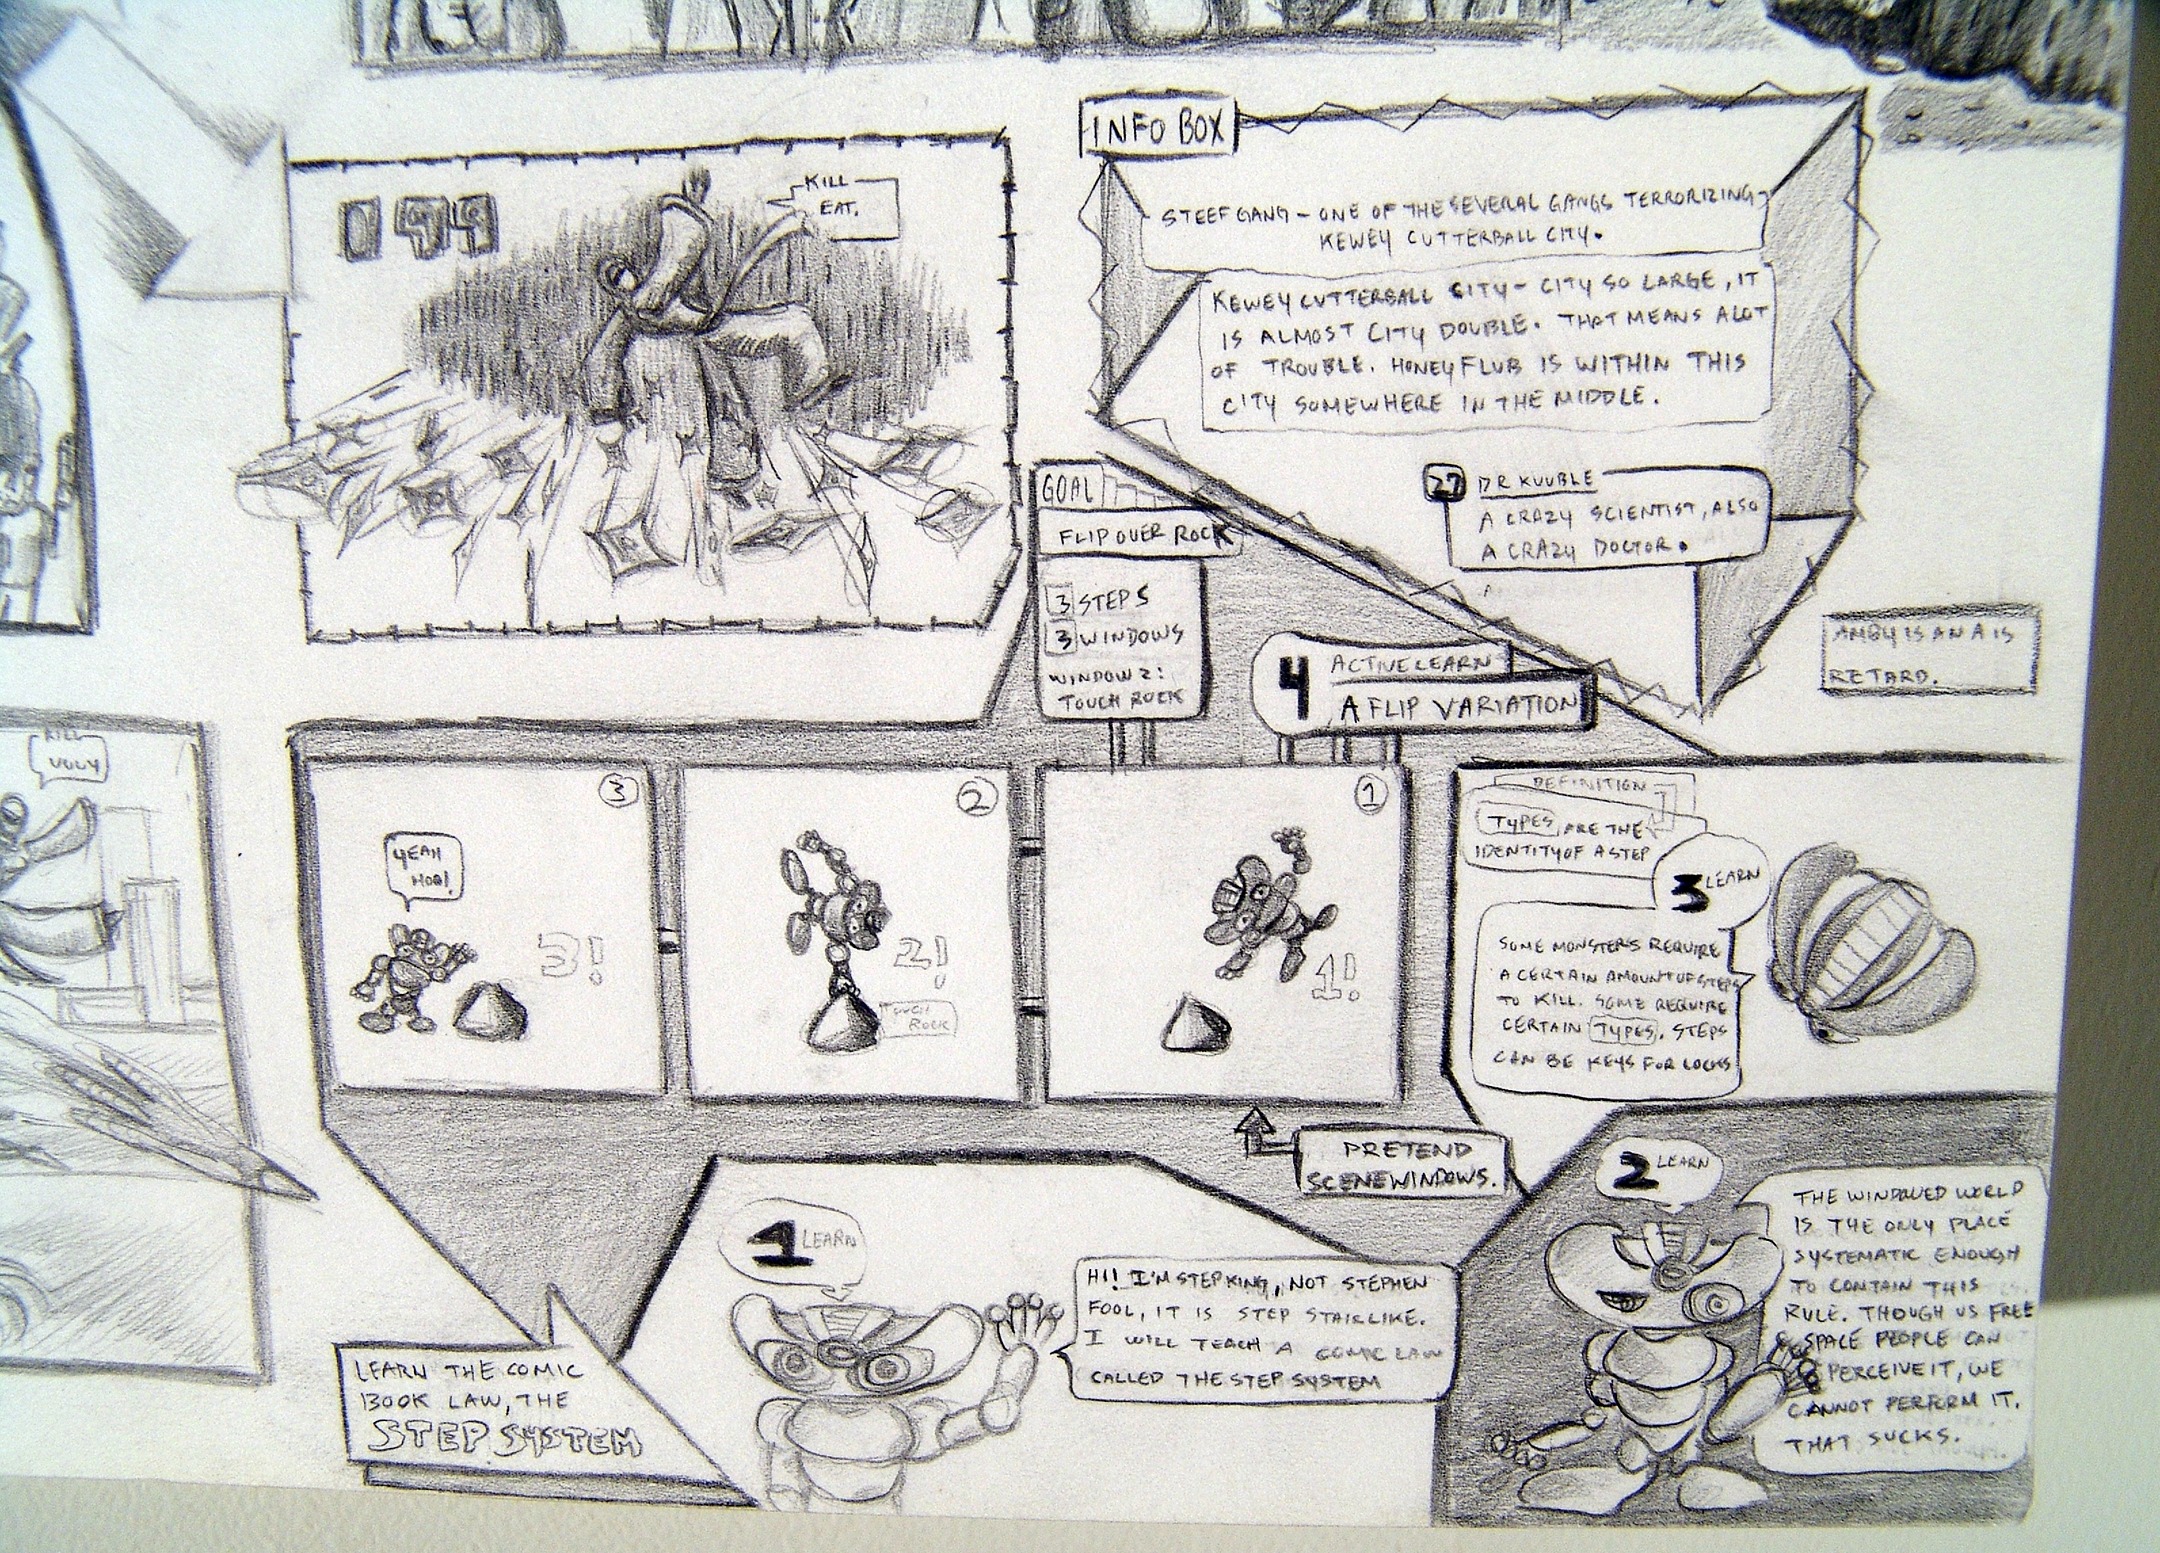 094
KILL
EAT.
INFO BOX
STEEF GANG - ONE OF THE SEVERAL GANGS TERRORIZING
KEWEY CUTTERBALL CITY.
KEWEY CUTTERBALL CITY - CITY SO LARGE, IT
IS ALMOST CITY DOUBLE. THAT MEANS ALOT
OF TROUBLE. HONEY FLUB IS WITHIN THIS
CITY SOMEWHERE IN THE MIDDLE.
27 DR KUUBLE
A CRAZY SCIENTIST, ALSO
A CRAZY DOCTOR.
AMBY IS AN A IS
RETARD.
GOAL
FLIP OVER ROCK
3 STEPS
3 WINDOWS
WINDOW 2:
TOUCH ROCK
4 ACTIVE LEARN
A FLIP VARIATION
KILL
UGLY
3
YEAH
HOO!
3!
2
2!
ROCK
1
1!
DEFINITION
TYPES ARE THE
IDENTITY OF A STEP
3 LEARN
SOME MONSTERS REQUIRE
A CERTAIN AMOUNT OF STEPS
TO KILL. SOME REQUIRE
CERTAIN TYPES. STEPS
CAN BE KEYS FOR LOCKS
PRETEND
SCENE WINDOWS.
2 LEARN
THE WINDOWED WORLD
IS THE ONLY PLACE
SYSTEMATIC ENOUGH
TO CONTAIN THIS
RULE. THOUGH US FREE
SPACE PEOPLE CAN
PERCEIVE IT, WE
CANNOT PERFORM IT.
THAT SUCKS.
1 LEARN
HI! I'M STEP KING, NOT STEPHEN
FOOL, IT IS STEP STAIRLIKE.
I WILL TEACH A COMIC LAW
CALLED THE STEP SYSTEM
LEARN THE COMIC
BOOK LAW, THE
STEP SYSTEM